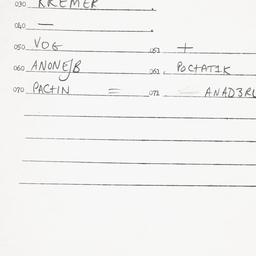 030 KREMER
040 —
050 VOG 051 +
060 ANONEJB 061 POCTAT1K
070 PACTIN = 071 ANAD3RL